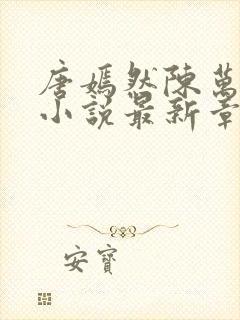 唐嫣然陳萬
小說最新章
安寶